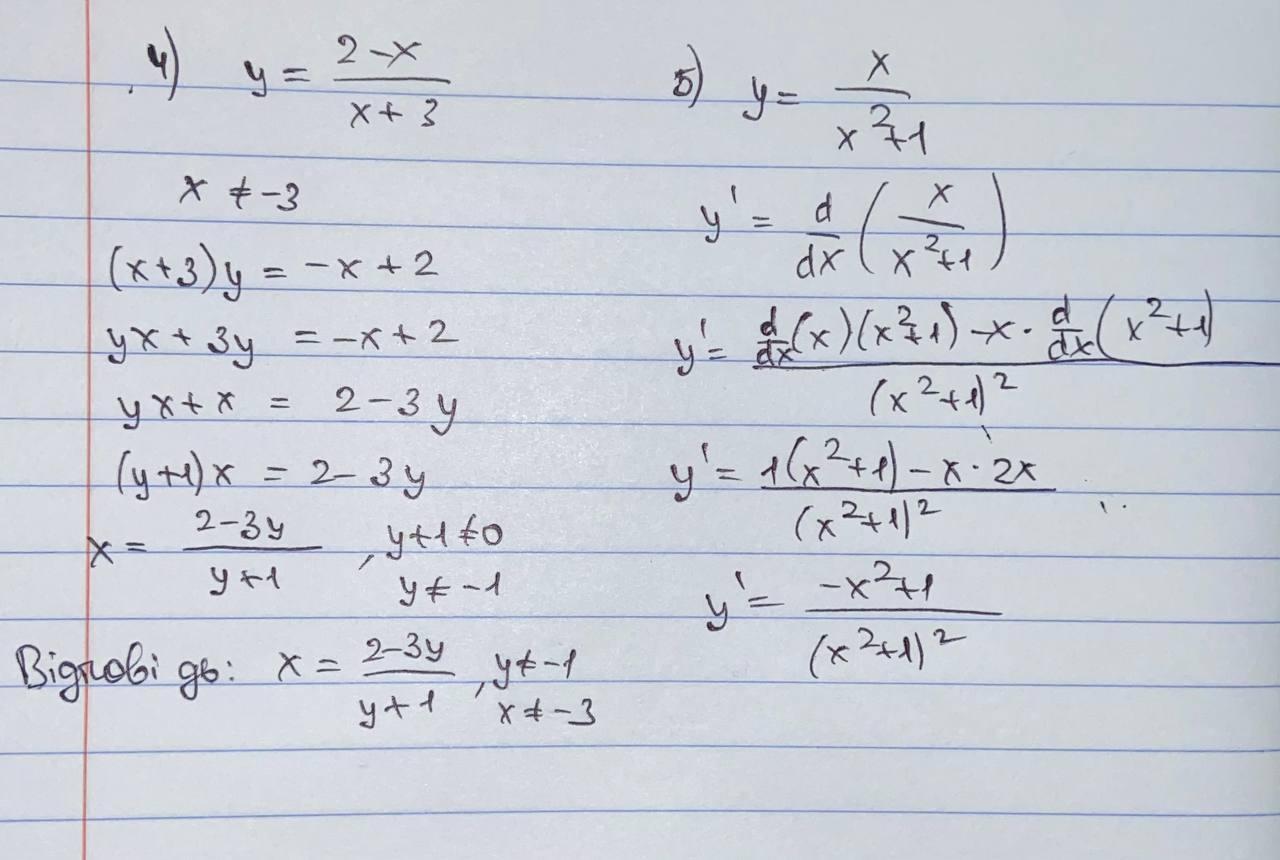 4) y = (2-x)/(x+3)
x ≠ -3
(x+3)y = -x+2
yx+3y = -x+2
yx+x = 2-3y
(y+1)x = 2-3y
x = (2-3y)/(y+1), y+1≠0
y≠-1
Відповідь: x = (2-3y)/(y+1), y≠-1
x≠-3
5) y = x/(x²+1)
y' = d/dx (x/(x²+1))
y' = (d/dx(x)(x²+1)-x·d/dx(x²+1))/(x²+1)²
y' = (1(x²+1)-x·2x)/(x²+1)²
y' = (-x²+1)/(x²+1)²